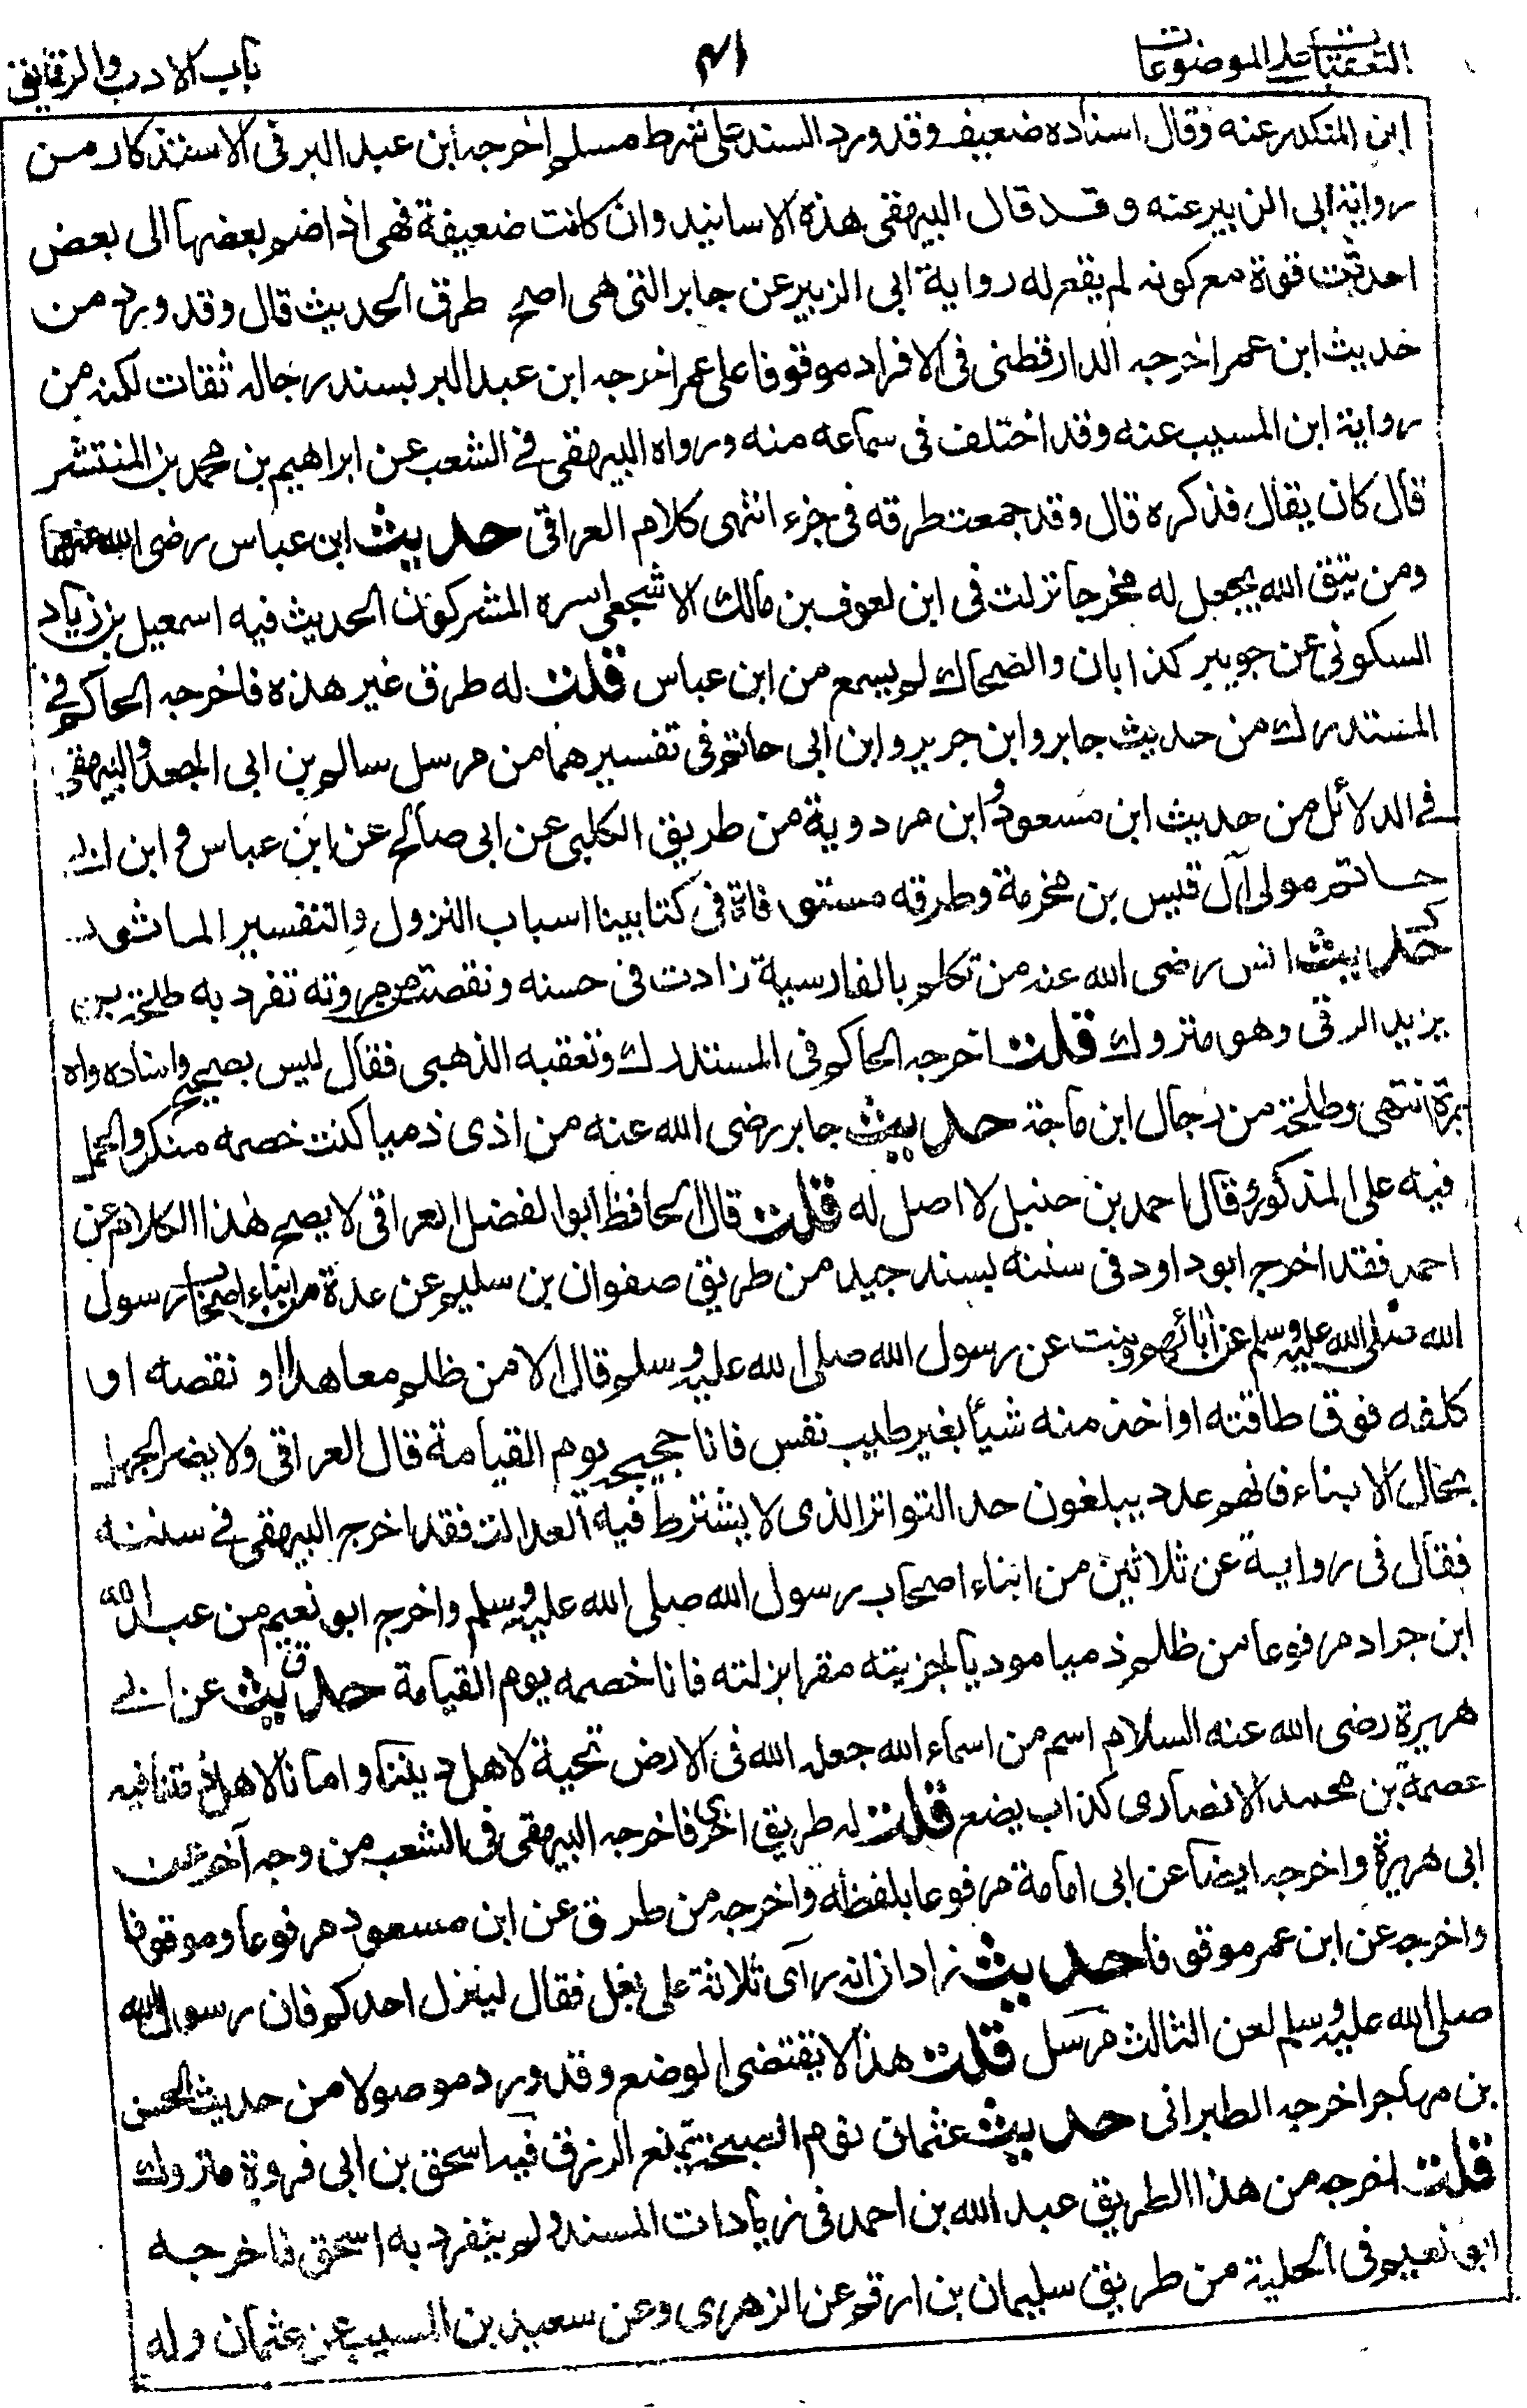 التعقبات على الموضوعات
۴۱
باب الادب والرقايق
ابن المنكدر عنه وقال اسناده ضعيف وقد ورد السند على شرط مسلم اخرجه ابن عبد البر فى الاستذكار من
رواية ابى الزبير عنه وقد قال البيهقى هذه الاسانيد وان كانت ضعيفة فهى اذا ضم بعضها الى بعض
احدثت قوة مع كونه لم يقع له رواية ابى الزبير عن جابر التى هى اصح طرق الحديث قال وقد ورد من
حديث ابن عمر اخرجه الدارقطنى فى الافراد موقوفا على عمر اخرجه ابن عبد البر بسند رجاله ثقات لكنه من
رواية ابن المسيب عنه وقد اختلف فى سماعه منه ورواه البيهقى فى الشعب عن ابراهيم بن محمد بن المنتشر
قال كان يقال فذكره قال وقد جمعت طرقه فى جزء انتهى كلام العراقى حديث ابن عباس رضى الله عنهما
ومن يتق الله يجعل له مخرجا نزلت فى ابن لعوف بن مالك الاشجعى اسره المشركون الحديث فيه اسمعيل بن زياد
السكونى عن جويبر كذابان والضحاك لم يسمع من ابن عباس قلت له طرق غير هذه فاخرجه الحاكم فى
المستدرك من حديث جابر وابن جرير وابن ابى حاتم فى تفسيرهما من مرسل سالم بن ابى الجعد والبيهقى
فى الدلائل من حديث ابن مسعود وابن مردوية من طريق الكلبى عن ابى صالح عن ابن عباس و ابن ابى
حاتم مولى آل قيس بن مخرمة وطرقه مستوفاة فى كتابينا اسباب النزول والتفسير الماثور
حديث انس رضى الله عنه من تكلم بالفارسية زادت فى حسنه ونقصت من مروته تفرد به طلحة بن
يزيد الرقى وهو متروك قلت اخرجه الحاكم فى المستدرك وتعقبه الذهبى فقال ليس بصحيح واسناده واه
بمرة انتهى وطلحة من رجال ابن ماجة حديث جابر رضى الله عنه من اذى ذميا كنت خصمه منكر والحمل
فيه على المذكور قال احمد بن حنبل لا اصل له قلت قال الحافظ ابو الفضل العراقى لا يصح هذا الكلام عن
احمد فقد اخرجه ابو داود فى سننه بسند جيد من طريق صفوان بن سليم عن عدة من ابناء اصحاب رسول
الله صلى الله عليه وسلم عن أبائهم دنية عن رسول الله صلى الله عليه وسلم قال الا من ظلم معاهدا او نقصه او
كلفه فوق طاقته او اخذ منه شيأ بغير طيب نفس فانا حجيجه يوم القيامة قال العراقى ولا يضر الجهل
بحال الابناء فانهم عدد يبلغون حد التواتر الذى لا يشترط فيه العدالة فقد اخرجه البيهقى فى سننه
فقال فى رواية عن ثلاثين من ابناء اصحاب رسول الله صلى الله عليه وسلم واخرج ابو نعيم من عبد الله
ابن جراد مرفوعا من ظلم ذميا موديا لجزيته مقرا بزلته فانا خصمه يوم القيامة حديث عن ابى
هريرة رضى الله عنه السلام اسم من اسماء الله جعله الله فى الارض تحية لاهل ديننا و امانا لاهل ذمتنا فيه
عصمة بن محمد الانصارى كذاب يضع قلت له طريق اخرى فاخرجه البيهقى فى الشعب من وجه آخر عن
ابى هريرة واخرجه ايضا عن ابى امامة مرفوعا بلفظه واخرجه من طرق عن ابن مسعود مرفوعا وموقوفا
واخرجه عن ابن عمر موقوفا حديث زاذان انه رآى ثلاثة على بغل فقال لينزل احدكم فان رسول الله
صلى الله عليه وسلم لعن الثالث مرسل قلت هذا لا يقتضى الوضع وقد ورد موصولا من حديث
بن مهاجر اخرجه الطبرانى حديث عثمان نوم الصبحة يمنع الرزق فيه اسحق بن ابى فروة متروك
قلت اخرجه من هذا الطريق عبد الله بن احمد فى زيادات المسند ولم ينفرد به اسحق فاخرجه
ابو نعيم فى الحلية من طريق سليمان بن ارقم عن الزهرى وعن سعيد بن المسيب عن عثمان وله